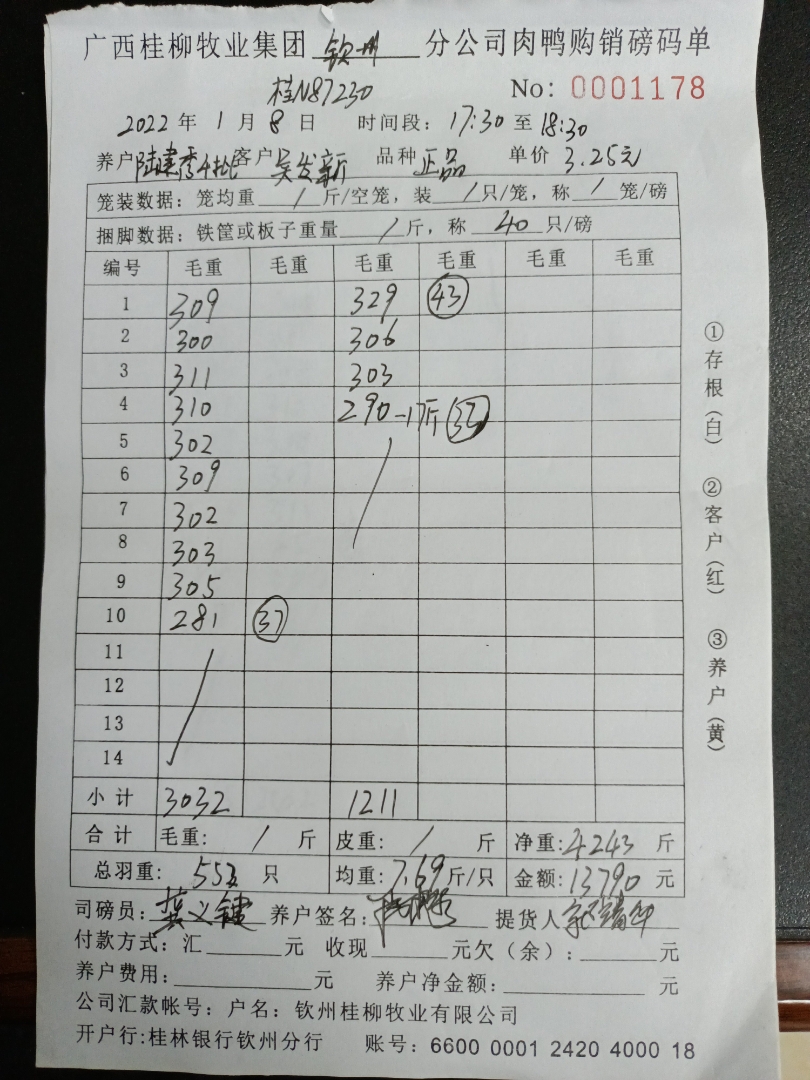 广西桂柳牧业集团 钦州 分公司肉鸭购销磅码单
桂N87230 No: 0001178
2022 年 1 月 8 日 时间段: 17:30 至 18:30
养户 陆建秀 客户 吴发新 品种 正品 单价 3.25元
笼装数据: 笼均重 / 斤/空笼, 装 / 只/笼, 称 / 笼/磅
捆脚数据: 铁筐或板子重量 / 斤, 称 40 只/磅
编号 毛重 毛重 毛重 毛重 毛重 毛重
1 309 329 43
2 300 306
3 311 303
4 310 290-17斤
5 302
6 309
7 302
8 303
9 305
10 281 37
11
12
13
14
小计 3032 1211
合计 毛重: / 斤 皮重: / 斤 净重: 4243 斤
总羽重: 552 只 均重: 7.69 斤/只 金额: 13790 元
司磅员: 龚义键 养户签名: 提货人
付款方式: 汇 元 收现 元欠(余): 元
养户费用: 元 养户净金额: 元
公司汇款帐号: 户名: 钦州桂柳牧业有限公司
开户行:桂林银行钦州分行 账号: 6600 0001 2420 4000 18
①存根(白) ②客户(红) ③养户(黄)